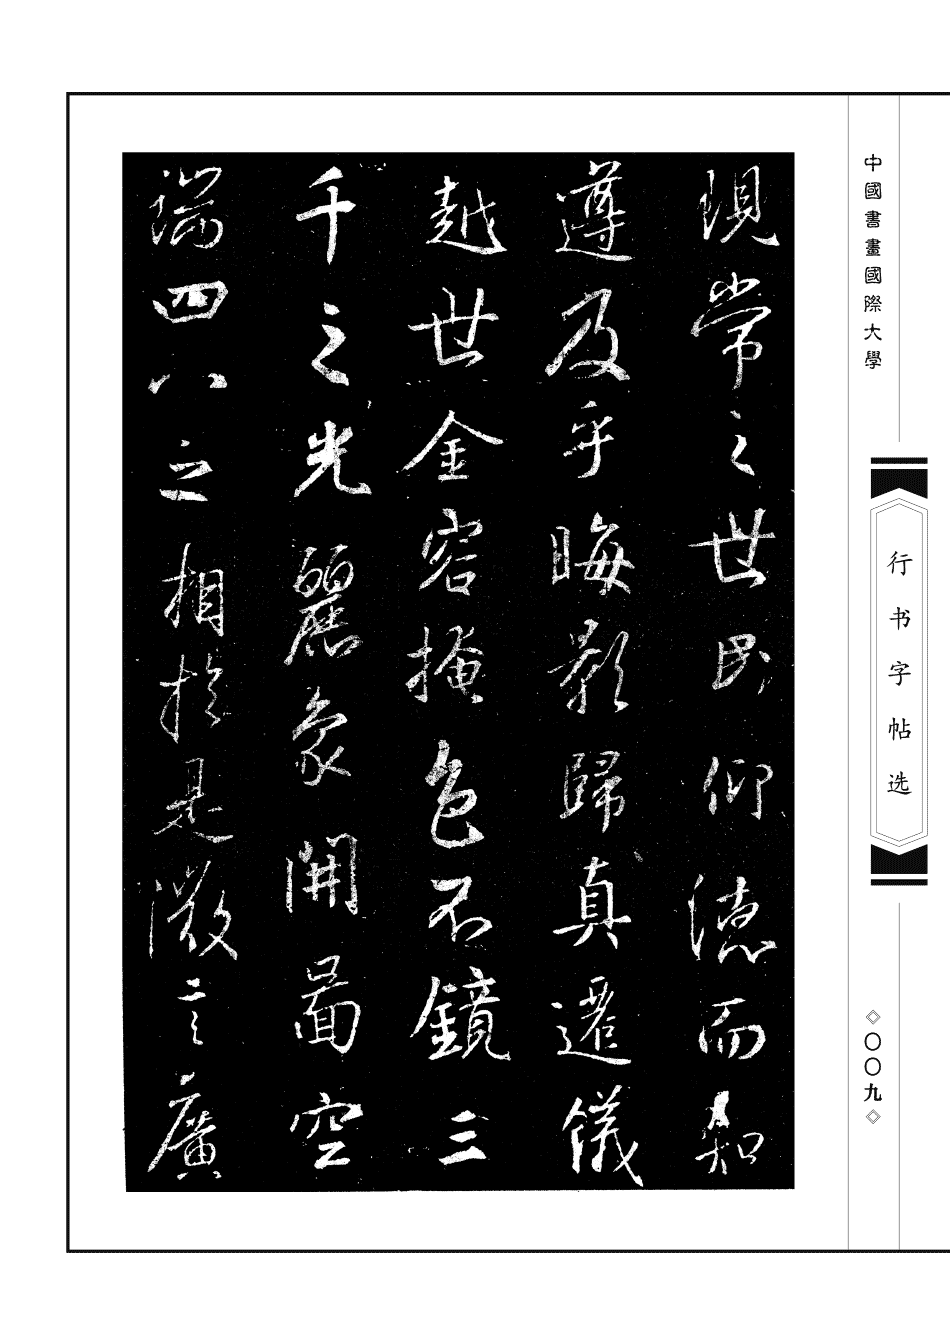 現常之世民仰德而知
遵及乎晦影歸真遷儀
越世金容掩色不鏡三
千之光麗象開圖空
端四八之相於是微言廣
中國書畫國際大學
行书字帖选
〇〇九